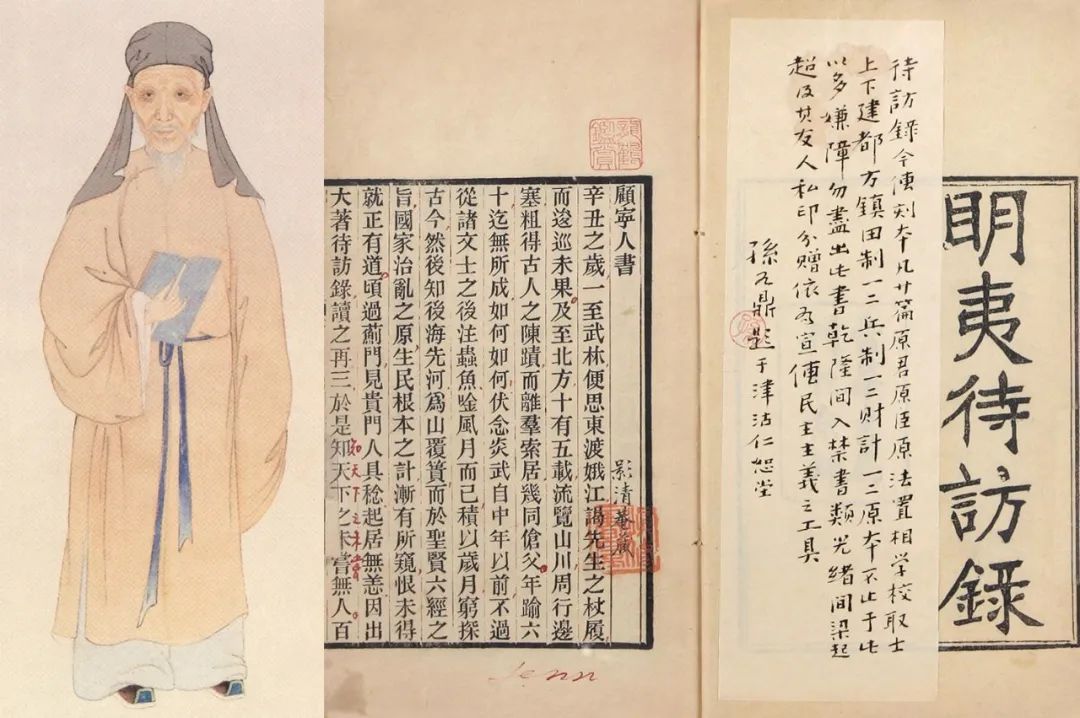 明夷待訪錄
待訪錄今傳刻本凡廿篇原君原臣原法置相學校取士
上下建都方鎮田制一二兵制一二財計一二原本不止于此
以多嫌障勿盡出此書乾隆間入禁書類光緒間梁起
超及其友人私印分贈依為宣傳民主主義之工具
孫九鼎題于津沽仁恕堂
顧寧人書
影清菴藏
辛丑之歲一至武林便思東渡娥江謁先生之杖履
而逡巡未果及至北方十有五載流覽山川周行邊
塞粗得古人之陳蹟而離羣索居幾同傖父年踰六
十迄無所成如何如何伏念炎武自中年以前不過
從諸文士之後注蟲魚唫風月而已積以歲月窮探
古今然後知後海先河爲山覆簣而於聖賢六經之
旨國家治亂之原生民根本之計漸有所窺恨未得
就正有道頃過薊門見貴門人具稔起居無恙因出
大著待訪錄讀之再三於是知天下之未嘗無人百
知天下之未嘗